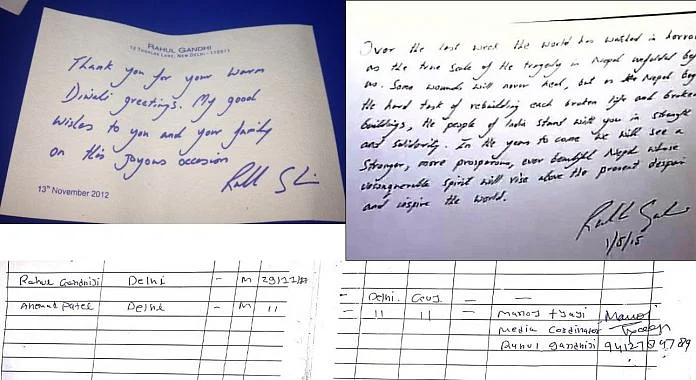 RAHUL GANDHI
12 TUGHLAK LANE, NEW DELHI - 110011
Thank you for your warm
Diwali greetings. My good
wishes to you and your family
on this joyous occasion
13th November 2012
Over the last week the world has watched in horror
as the true scale of the tragedy in Nepal unfolded
us. Some wounds will never heal, but as Nepal
the hard task of rebuilding each broken life and broken
buildings, the people of India stand with you in strength
and solidarity. In the years to come we will see a
stronger, more prosperous, ever beautiful Nepal whose
unconquerable spirit will rise above the present despair
and inspire the world.
1/5/15
Rahul Gandhiji Delhi - M
Ahemad Patel Delhi - M 11
- Delhi. - -
- 11 11 - Manoj tyagi Manoj
Media Cordinator
Rahul gandhiji